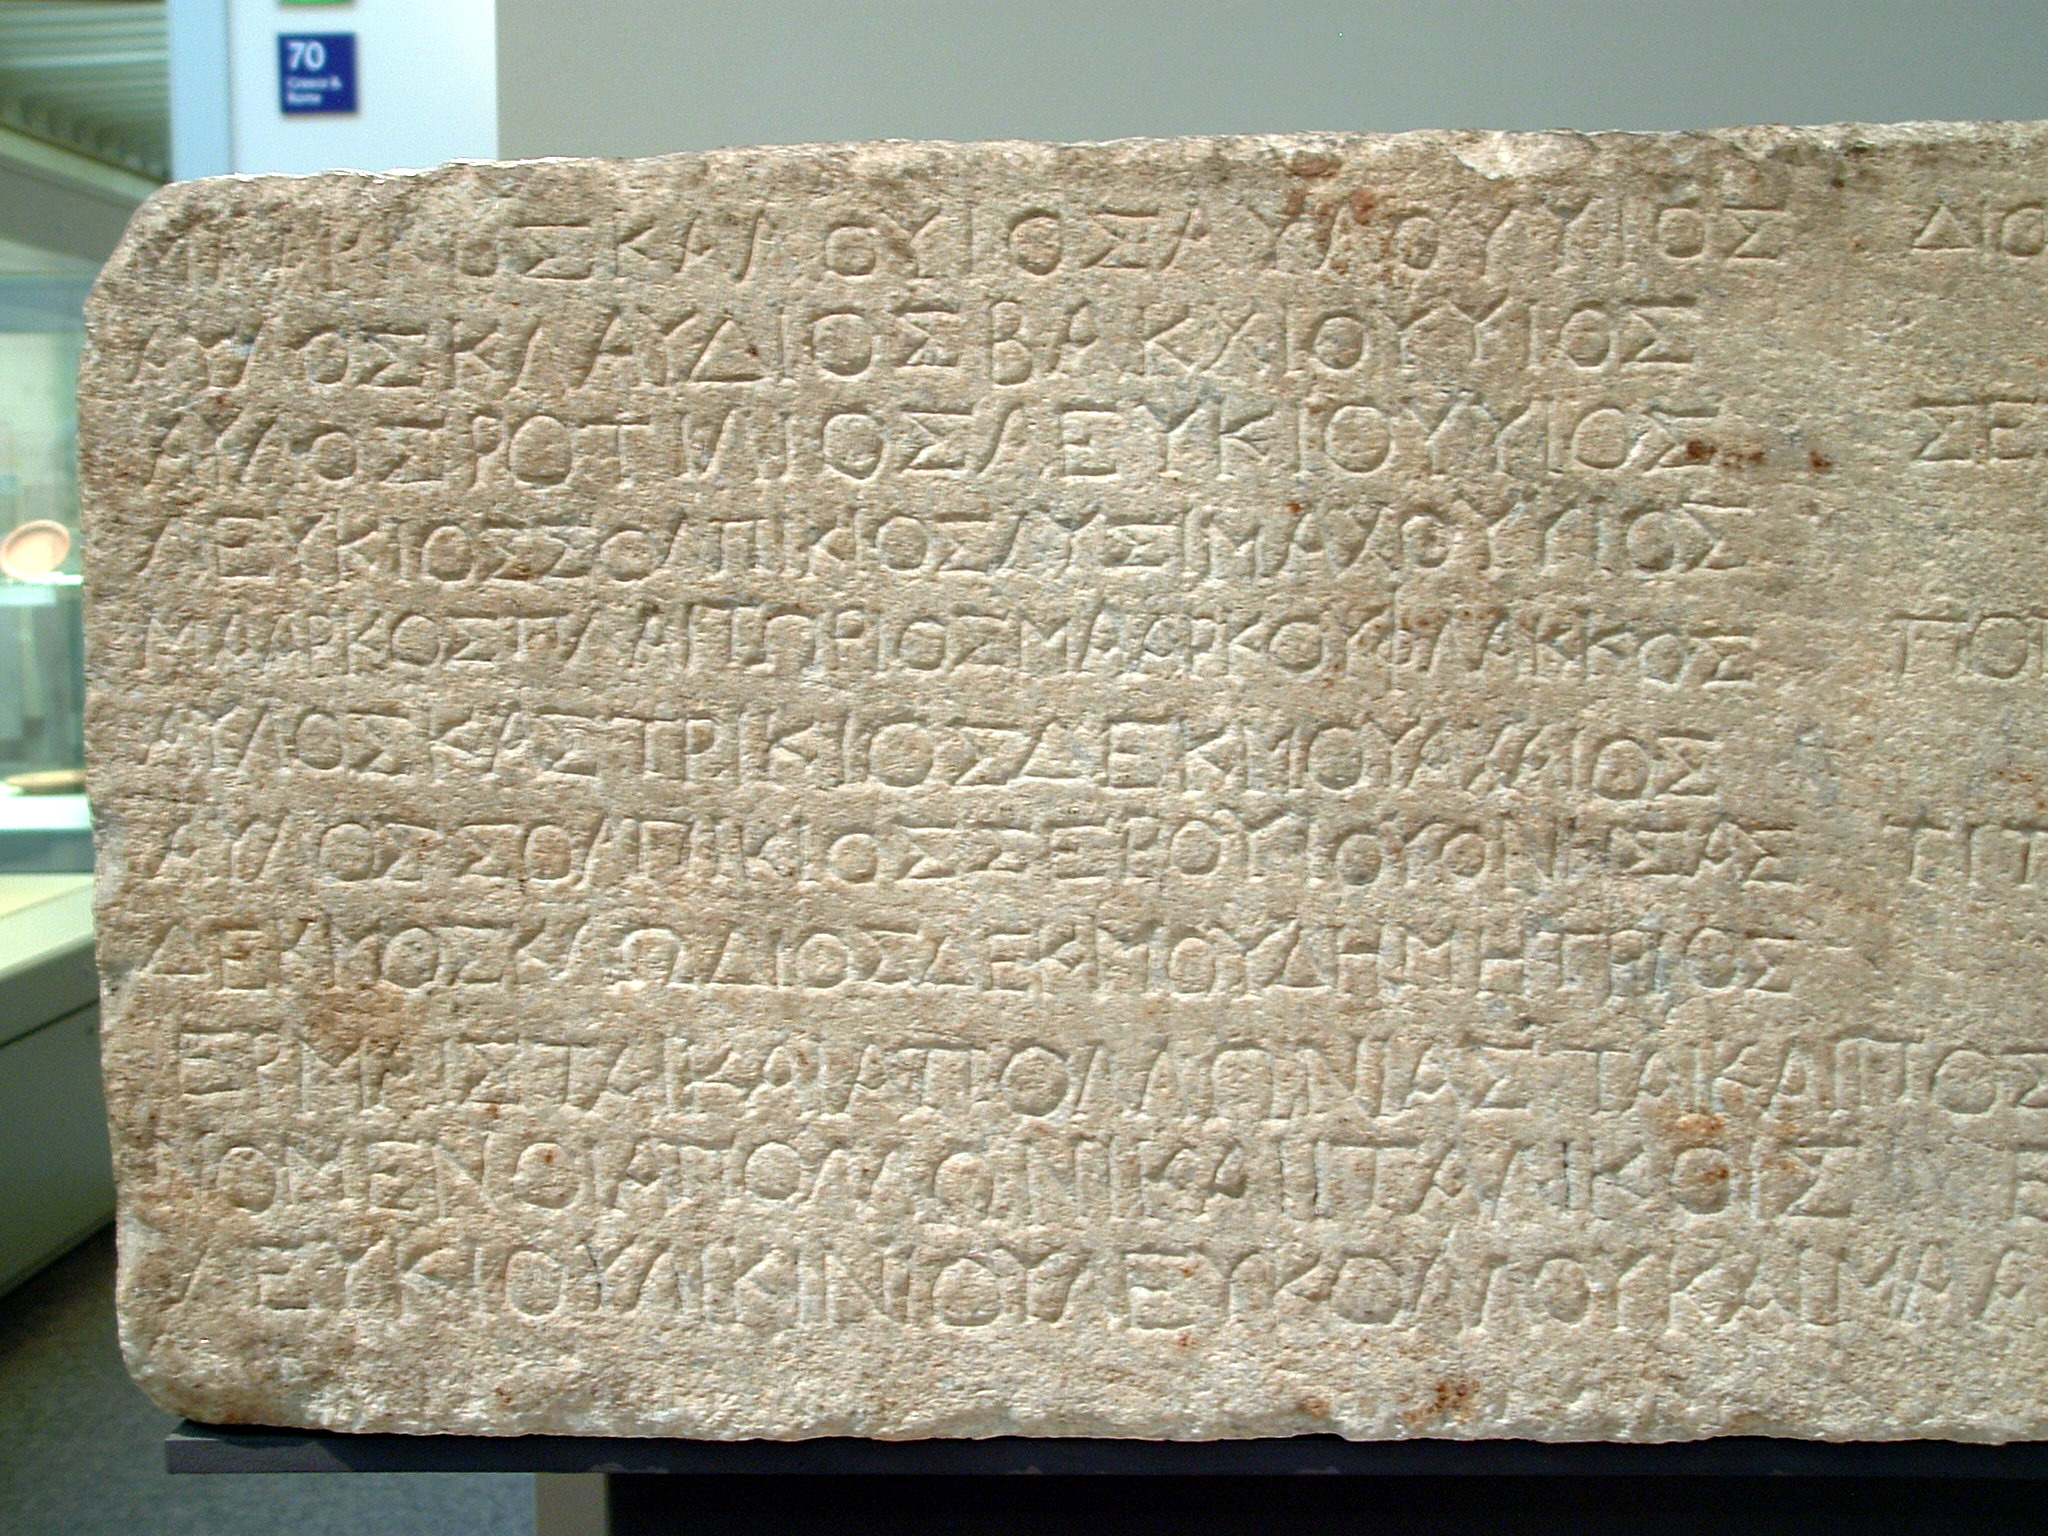 70
Greece &
Rome
ΜΑΑΡΚΟΣΚΑΛΟΥΙΟΣΑΥΛΟΥΥΙΟΣ ΔΙΟ
ΑΥΛΟΣΚΛΑΥΔΙΟΣΒΑΚΧΙΟΥΥΙΟΣ
ΑΥΛΟΣΡΟΤΙΛΙΟΣΛΕΥΚΙΟΥΥΙΟΣ ΣΕ
ΛΕΥΚΙΟΣΣΟΛΠΙΚΙΟΣΛΥΣΙΜΑΧΟΥΥΙΟΣ
ΜΑΑΡΚΟΣΠΛΑΙΤΩΡΙΟΣΜΑΑΡΚΟΥΦΛΑΚΚΟΣ ΠΟΠ
ΑΥΛΟΣΚΑΣΤΡΙΚΙΟΣΔΕΚΜΟΥ
ΑΥΛΟΣΣΟΛΠΙΚΙΟΣΣΕΡΟΥΙΟΥΟΝΗΣΑΣ ΤΙΤ
ΔΕΚΜΟΣΚΛΩΔΙΟΣΔΕΚΜΟΥΔΗΜΗΤΡΙΟΣ
ΕΡΜΑΙΣΤΑΙΚΑΙΑΠΟΛΛΩΝΙΑΣΤΑΙΚΑΙΠΟΣ
ΝΟΜΕΝΟΙΑΠΟΛΛΩΝΙΚΑΙΙΤΑΛΙΚΟΙΣ Ε
ΛΕΥΚΙΟΥΛΙΚΙΝΙΟΥΛΕΥΚΟΛΛΟΥΚΑΙΜΑΑ